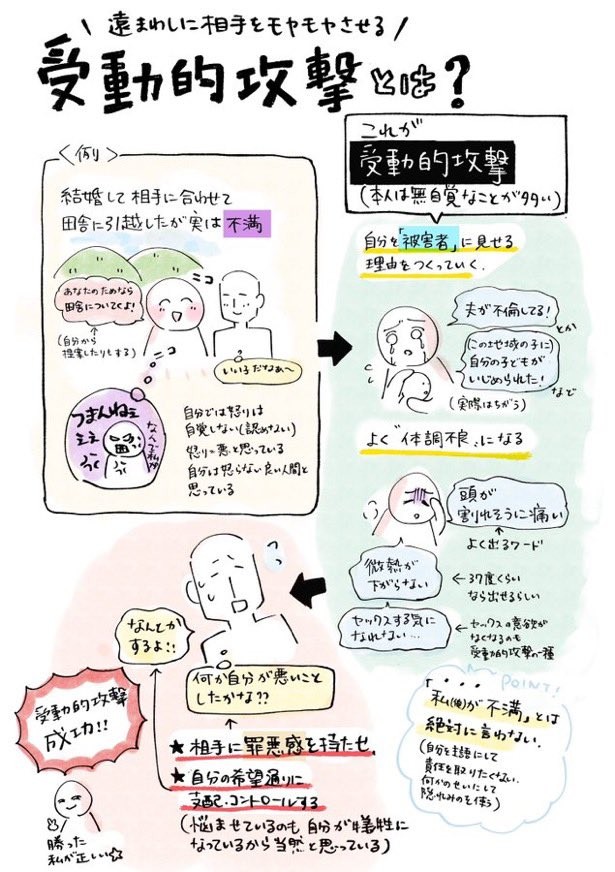 遠まわしに相手をモヤモヤさせる
受動的攻撃とは?
<例>
結婚して相手に合わせて
田舎に引越したが実は不満
あなたのためなら
田舎についてくよ!
(自分から
提案したりもする)
ニコ
ニコ
いい子だなぁ〜
つまんねぇ
なんで私が
自分では怒りは
自覚しない(認めない)
怒り=悪と思っている
自分は怒らない良い人間と
思っている
これが
受動的攻撃
(本人は無自覚なことが多い)
自分を「被害者」に見せる
理由をつくっていく。
夫が不倫してる!
とか
(この地域の子に)
自分の子どもが
いじめられた!
など
(実際はちがう)
よく"体調不良"になる
頭が
割れそうに痛い
よく出るワード
微熱が
下がらない
←37度くらい
なら出せるらしい
セックスする気に
なれない…
←セックスの意欲が
なくなるのも
受動的攻撃の一種
POINT!
「私(僕)が不満」とは
絶対に言わない。
(自分を主語にして
責任を取りたくない。
何かのせいにして
隠れみのを使う)
なんとか
するよ!!
何か自分が悪いこと
したかな??
★相手に罪悪感を持たせ、
★自分の希望通りに
支配・コントロールする
(悩ませているのも自分が犠牲に
なっているから当然と思っている)
受動的攻撃
成功!!
勝った
私が正しい☆